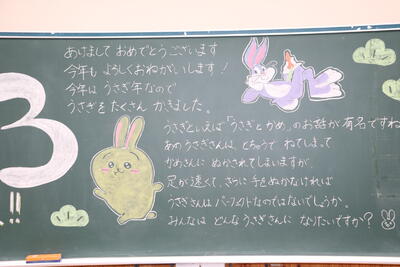 あけまして おめでとうございます
今年も よろしくおねがいします!
今年は うさぎ年なので
うさぎをたくさん かきました。
3
!!
うさぎといえば「うさぎとかめ」のお話が有名ですね
あのうさぎさんは、とちゅうで ねてしまって
かめさんに ぬかされてしまいますが、
足が速くて、さらに手をぬかなければ
うさぎさんはパーフェクトなのではないでしょうか。
みんなは どんなうさぎさんに なりたいですか?